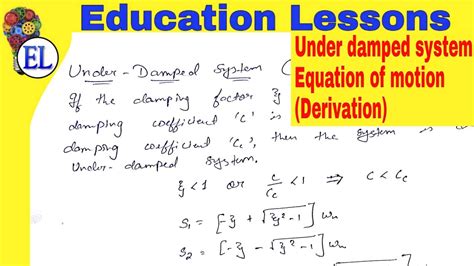 Education Lessons
EL
Under damped system
Equation of motion
(Derivation)
Under-Damped System (
If the damping factor ξ
damping coefficient 'c' is
damping coefficient 'Cc', then the system is
Under-damped system.
ξ<1 or c/Cc <1 ⇒ C < Cc
S1 = [-ξ + √ξ²-1] ωn
S2 = [-ξ - √ξ²-1] ωn